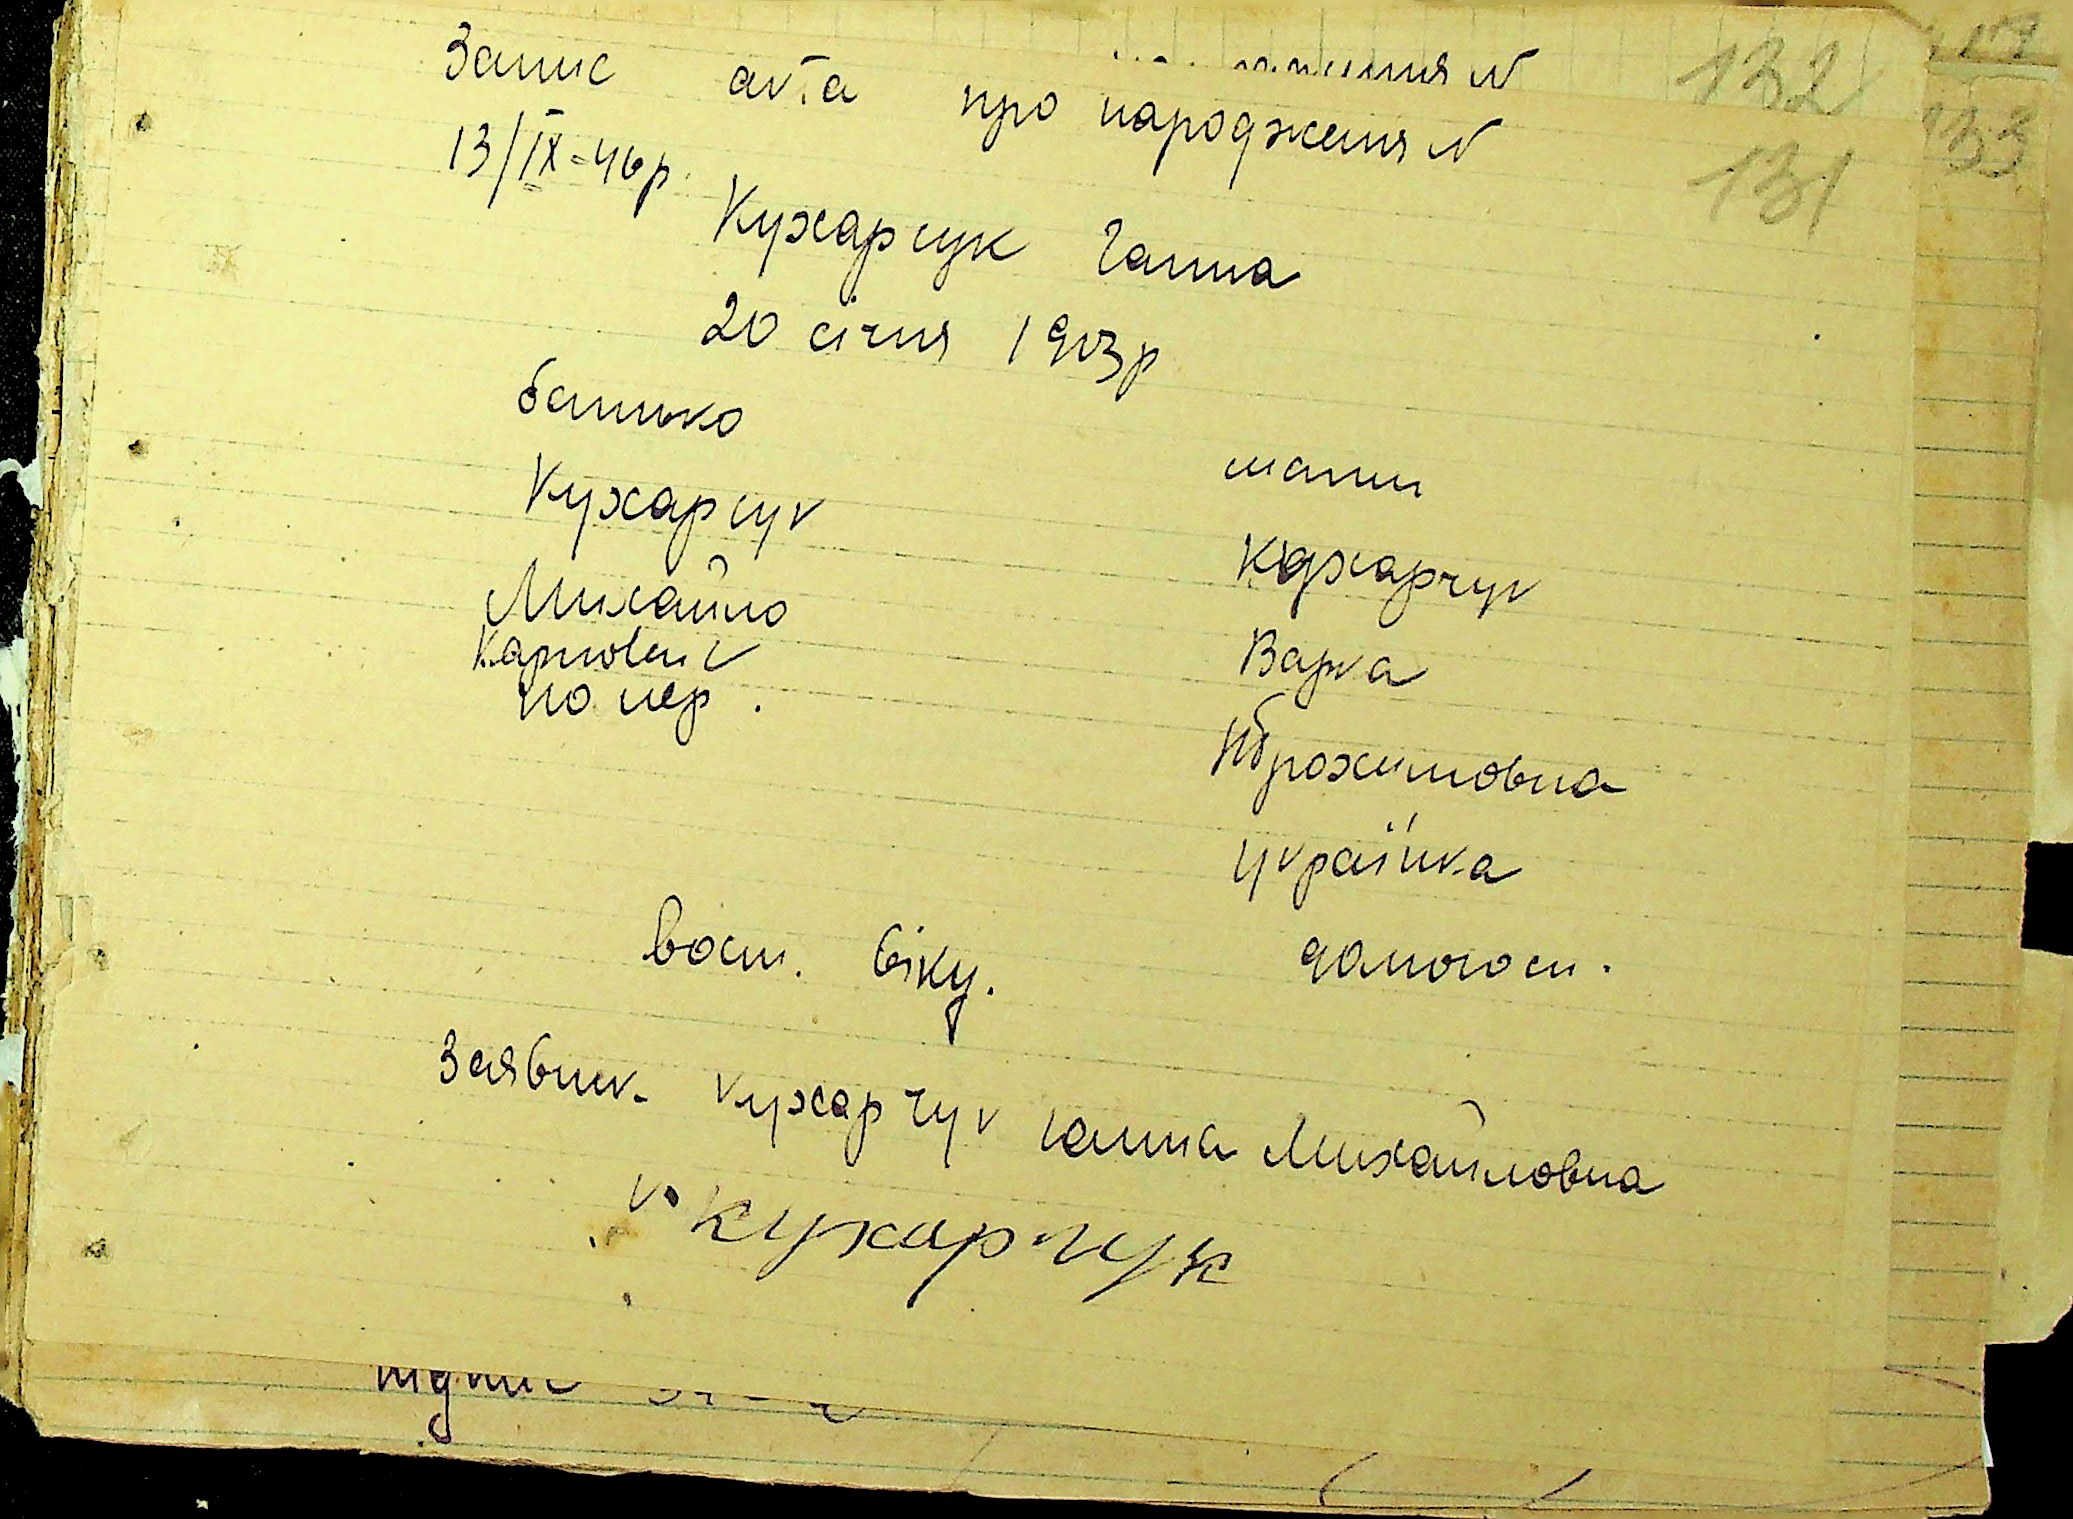 132
Запис акта про народженя N
131
13/IX-46р.
Кухарчук Ганна
20 січня 1903р
батько
мати
Кухарчук
Кухарчук
Михайло
Варка
Карпович
помер.
Єврохимовна
українка
вост. віку.
домогосп.
Заявник Кухарчук Ганна Михайловна
Кухарчук
підпис
133